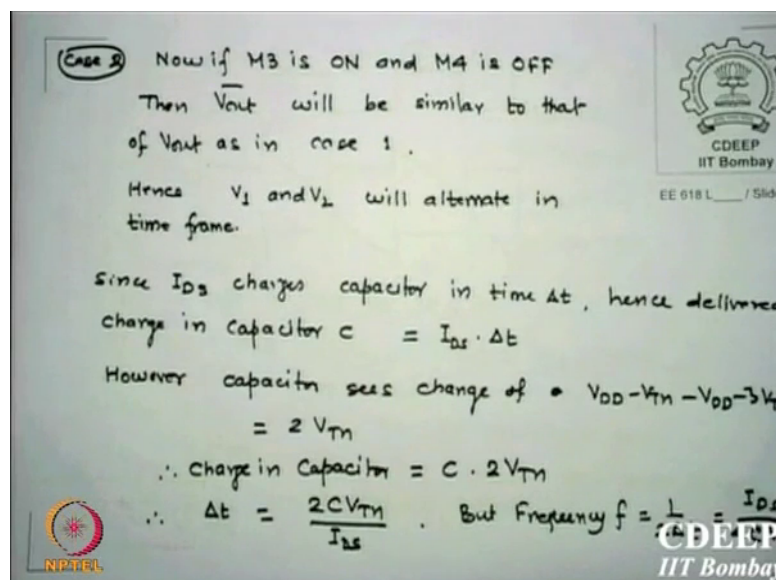 Case 2 Now if M3 is ON and M4 is OFF
Then V̅out will be similar to that
of Vout as in case 1.
Hence V1 and V2 will alternate in
time frame.
Since IDS charges capacitor in time Δt, hence delivered
charge in capacitor C = IDS · Δt
However capacitor sees change of VDD - VTn - VDD - 3V
= 2 VTn
∴ Charge in Capacitor = C · 2VTn
∴ Δt = 2CVTn / IDS . But Frequency f = 1 / = IDS /
CDEEP
IIT Bombay
EE 618 L____ / Slid
NPTEL
CDEEP
IIT Bombay